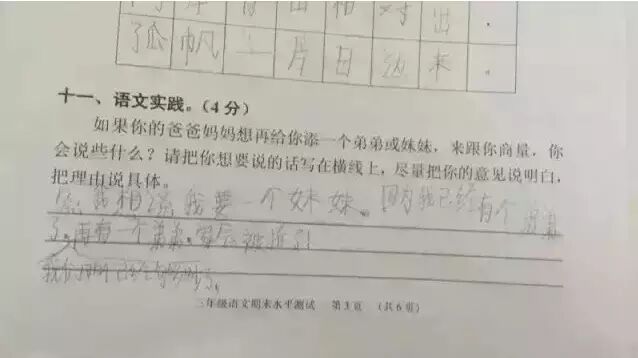 了孤帆一片日边来。
十一、语文实践。(4分)
如果你的爸爸妈妈想再给你添一个弟弟或妹妹，来跟你商量，你
会说些什么？请把你想要说的话写在横线上，尽量把你的意见说明白，
把理由说具体。
我想说我要一个妹妹。因为我已经有个弟弟
了。再有一个弟弟。家会被拆了！
三年级语文期末水平测试 第3页 (共6页)